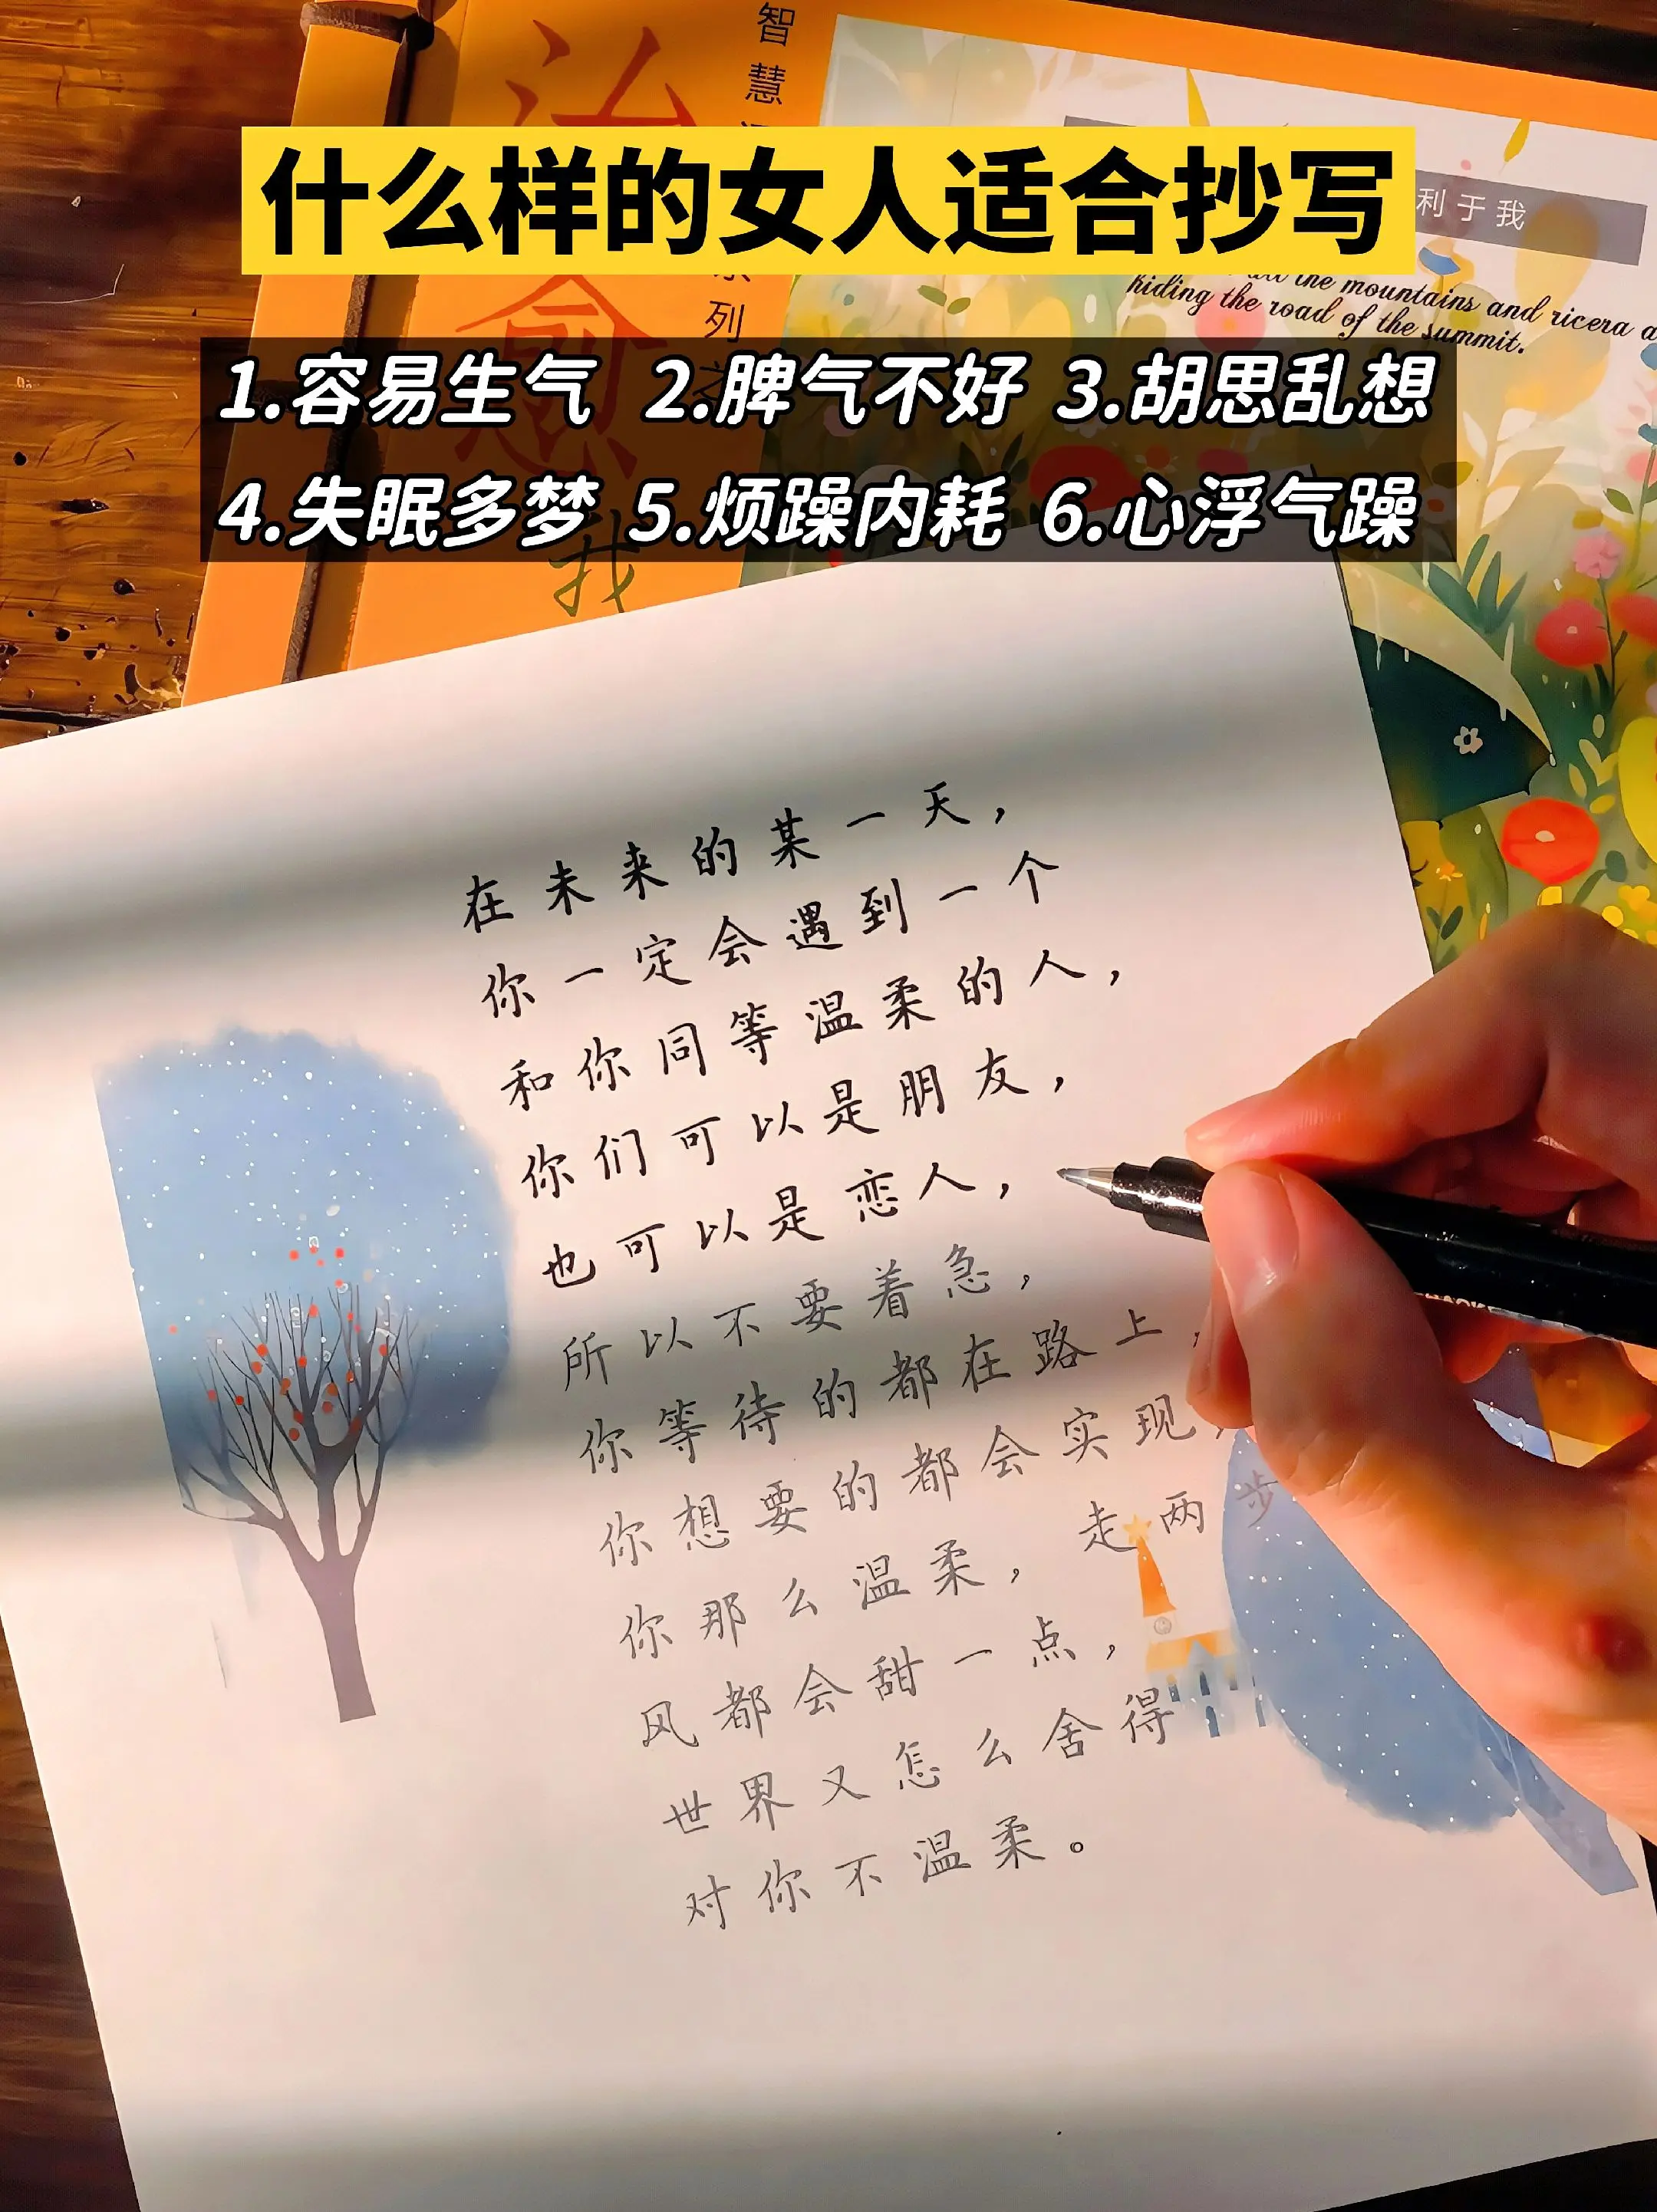 智慧
系列之
治愈
我
什么样的女人适合抄写
利于我
the mountains and ricera a
hiding the road of the summit.
1.容易生气 2.脾气不好 3.胡思乱想
4.失眠多梦 5.烦躁内耗 6.心浮气躁
在未来的某一天，
你一定会遇到一个
和你同等温柔的人，
你们可以是朋友，
也可以是恋人，
所以不要着急，
你等待的都在路上，
你想要的都会实现，
你那么温柔，走两步
风都会甜一点，
世界又怎么舍得
对你不温柔。